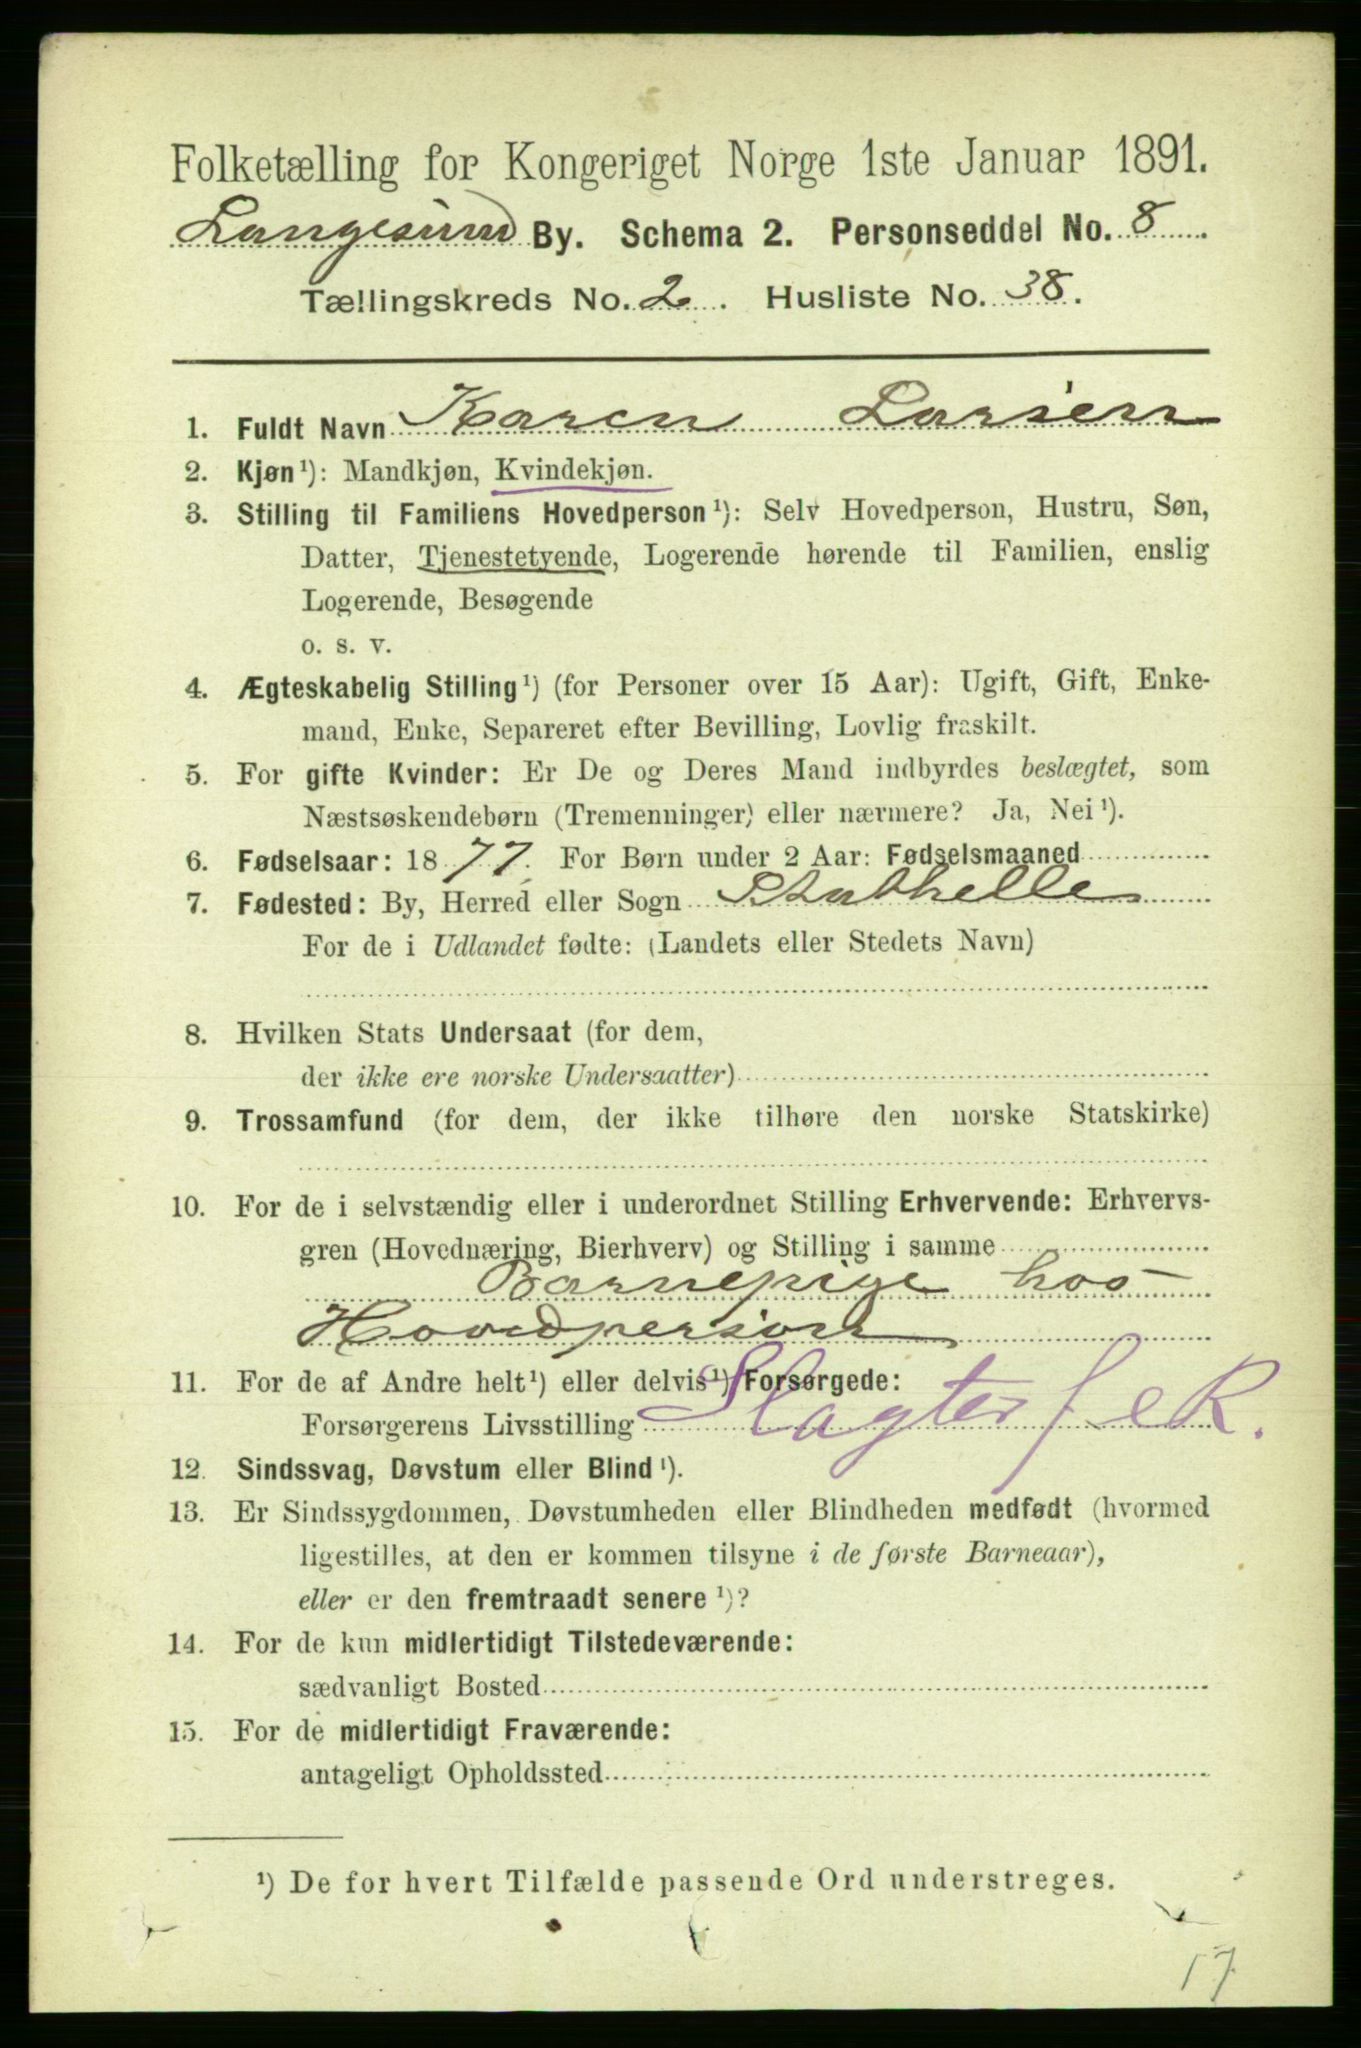 Folketælling for Kongeriget Norge 1ste Januar 1891.
Langesund By. Schema 2. Personseddel No. 8
Tællingskreds No. 2. Husliste No. 38.
1. Fuldt Navn Karen Larsen
2. Kjøn ¹): Mandkjøn, Kvindekjøn.
3. Stilling til Familiens Hovedperson ¹): Selv Hovedperson, Hustru, Søn,
Datter, Tjenestetyende, Logerende hørende til Familien, enslig
Logerende, Besøgende
o. s. v.
4. Ægteskabelig Stilling ¹) (for Personer over 15 Aar): Ugift, Gift, Enke-
mand, Enke, Separeret efter Bevilling, Lovlig fraskilt.
5. For gifte Kvinder: Er De og Deres Mand indbyrdes beslægtet, som
Næstsøskendebørn (Tremenninger) eller nærmere? Ja, Nei ¹).
6. Fødselsaar: 1877. For Børn under 2 Aar: Fødselsmaaned
7. Fødested: By, Herred eller Sogn Stathelle
For de i Udlandet fødte: (Landets eller Stedets Navn)
8. Hvilken Stats Undersaat (for dem,
der ikke ere norske Undersaatter)
9. Trossamfund (for dem, der ikke tilhøre den norske Statskirke)
10. For de i selvstændig eller i underordnet Stilling Erhvervende: Erhvervs-
gren (Hovednæring, Bierhverv) og Stilling i samme
Barnepige hos
Hovedperson
11. For de af Andre helt ¹) eller delvis ¹) Forsørgede:
Forsørgerens Livsstilling Slagterf e R.
12. Sindssvag, Døvstum eller Blind ¹).
13. Er Sindssygdommen, Døvstumheden eller Blindheden medfødt (hvormed
ligestilles, at den er kommen tilsyne i de første Barneaar),
eller er den fremtraadt senere ¹)?
14. For de kun midlertidigt Tilstedeværende:
sædvanligt Bosted
15. For de midlertidigt Fraværende:
antageligt Opholdssted
¹) De for hvert Tilfælde passende Ord understreges.
17